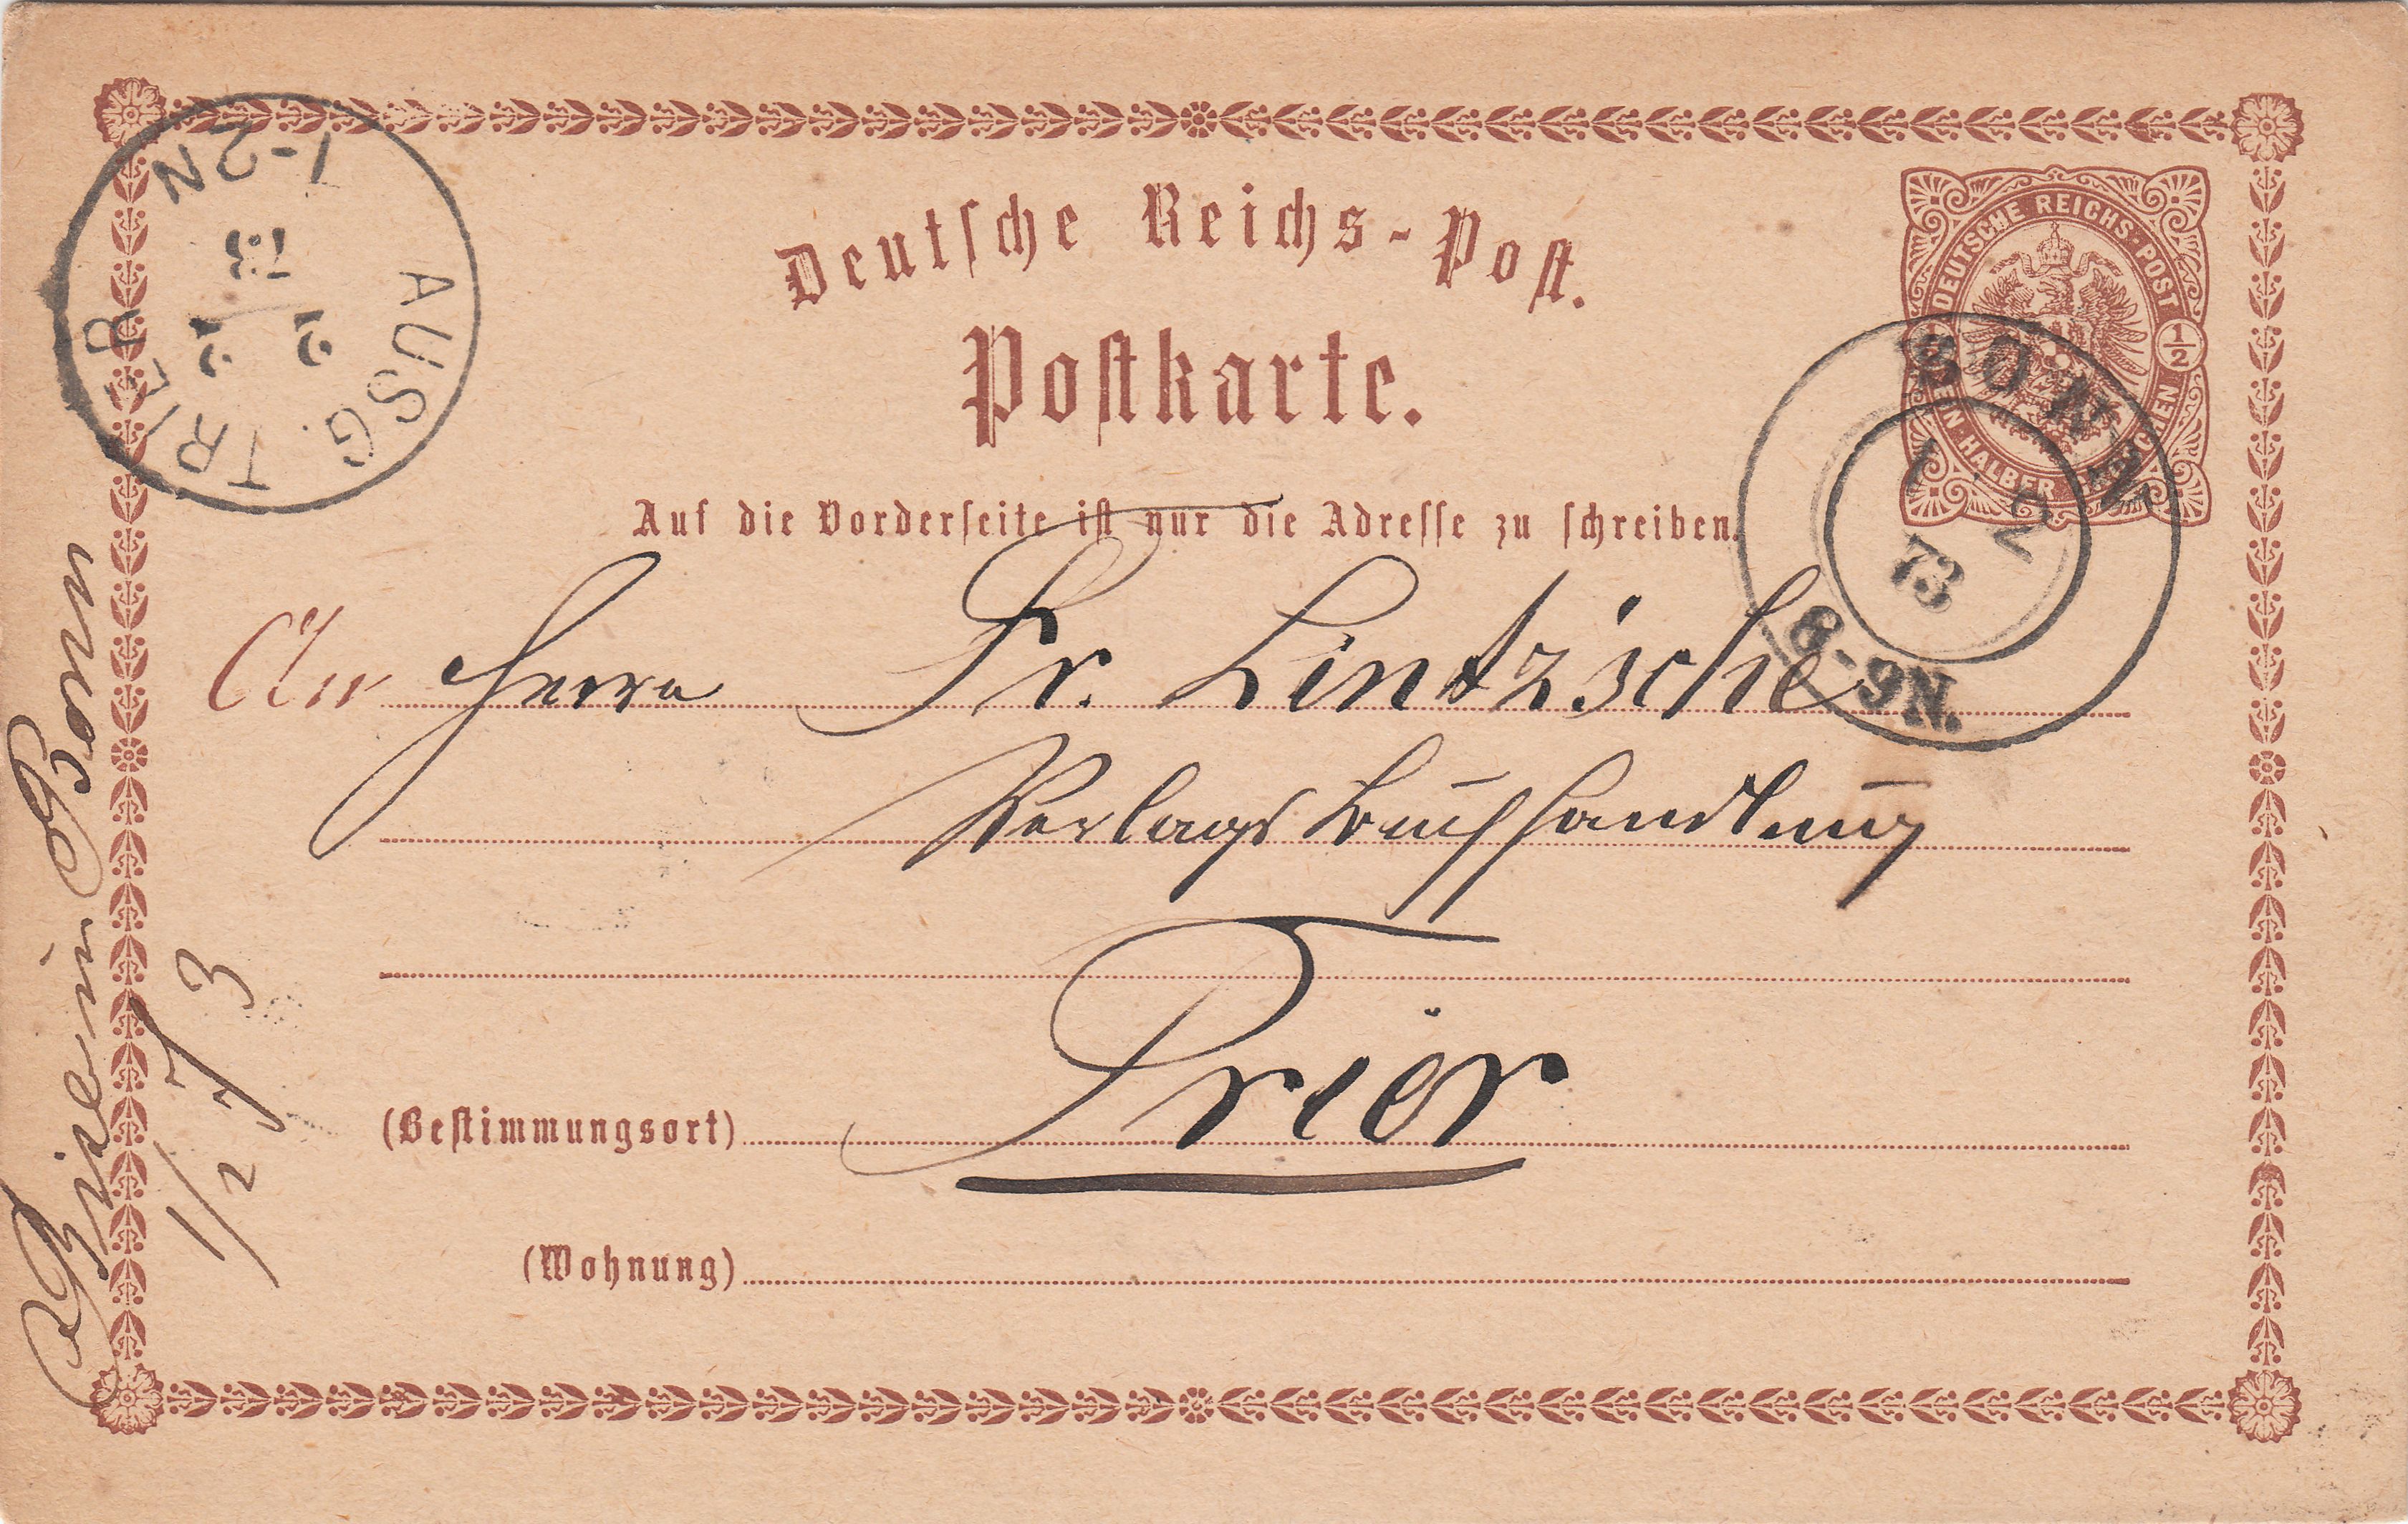 Deutsche Reichs-Post.
Postkarte.
DEUTSCHE REICHS-POST
1/2
EIN HALBER GROSCHEN
Auf die Vorderseite ist nur die Adresse zu schreiben.
BONN
1 2
73
8-9N.
AUSG. TRIER
2 2
73
1-2N
An Herrn Fr. Lintz'sche
Verlagsbuchhandlung
(Bestimmungsort) Trier
(Wohnung)
Bonn
1/2 73